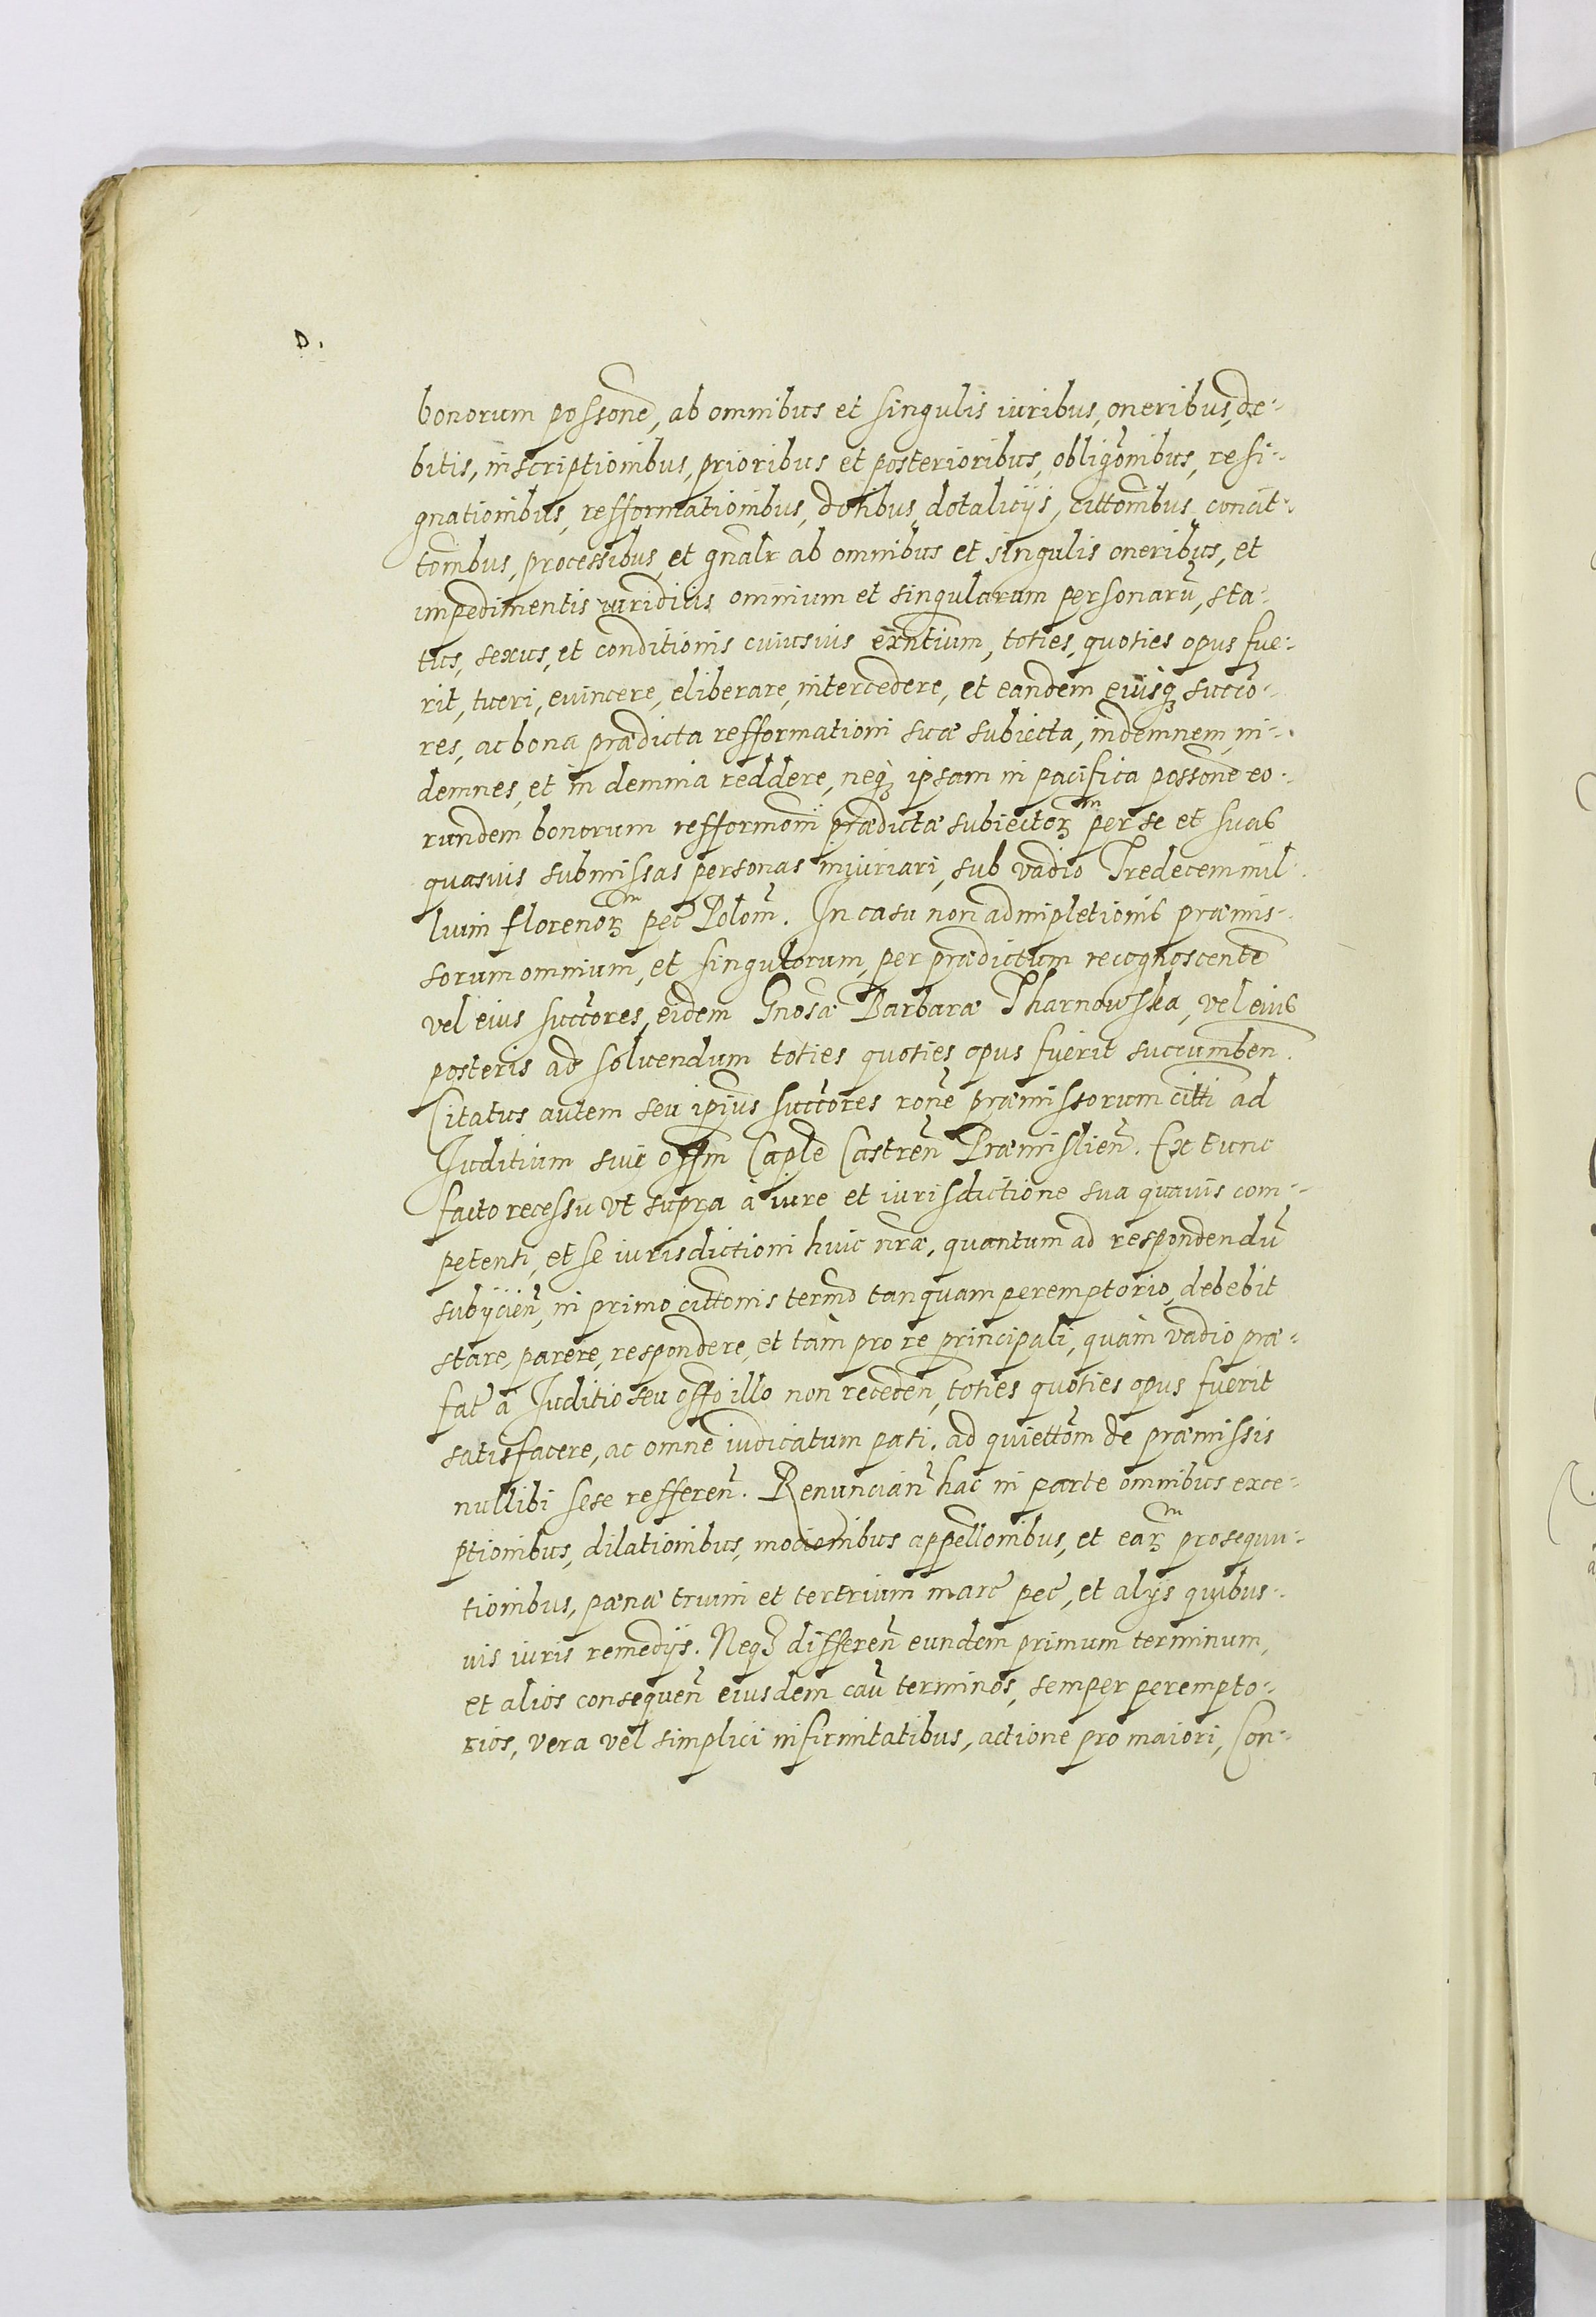 D.
bonorum possone, ab omnibus et singulis iuribus, oneribus, de-
bitis, inscriptionibus, prioribus et posterioribus, obligonibus, resi-
gnationibus, refformationibus, dotibus, dotalicijs, cittonibus concit-
tonibus, processibus, et gnalr ab omnibus et singulis oneribus, et
impedimentis iuridicis omnium et singularum personarū, sta-
tus, sexus, et conditionis cuiusvis exntium, toties, quoties opus fue-
rit, tueri, evincere, eliberare, intercedere, et eandem eiusq succo-
res, ac bona prædicta refformationi suæ subiecta, indemnem, in-
demnes, et in demnia reddere, neq ipsam in pacifica possone eo-
rundem bonorum refformoni prædictæ subiectorm per se et suas
quasvis submissas personas iniuriari, sub vadio Tredecem mil-
lium florenorm pec Polom. In casu non adimpletionis præmis-
sorum omnium, et singulorum, per prædictum recognoscente
vel eius succores, eidem Gnosæ Barbaræ Tharnowska, vel eius
posteris ad solvendum toties quoties opus fuerit succumben.
Citatus autem seu ipius succores rone præmissorum citti ad
Iuditium sive offm Caple Castren Præmislien. Ex tunc
facto recessu ut supra à iure et iurisdictione sua quavis com-
petenti, et se iurisdictioni huic nræ, quantum ad respondendū
subijcien, in primo cittonis termo tanquam peremptorio, debebit
stare, parere, respondere, et tam pro re principali, quàm vadio præ-
fat à Iuditio seu offo illo non receden, toties quoties opus fuerit
satisfacere, ac omne iudicatum pati, ad quiettom de præmissis
nullibi sese refferen. Renuncian hac in parte omnibus exce-
ptionibus, dilationibus, motionibus appellonibus, et earm prosequu-
tionibus, pænæ trium et tertrium marc pec, et alijs quibus-
vis iuris remedijs. Neq differen eundem primum terminum,
et alios consequen eiusdem caū terminos, semper perempto-
rios, vera vel simplici infirmitatibus, actione pro maiori, Con-